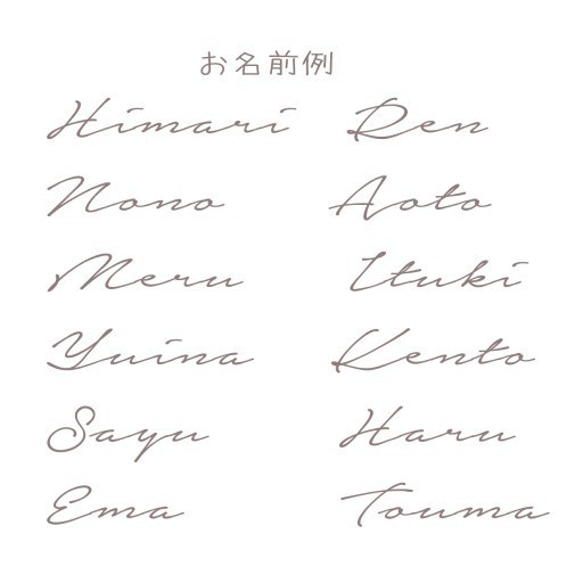 お名前例
Himari Ren
Nono Aoto
Meru Ituki
Yuina Kento
Sayu Haru
Ema Touma